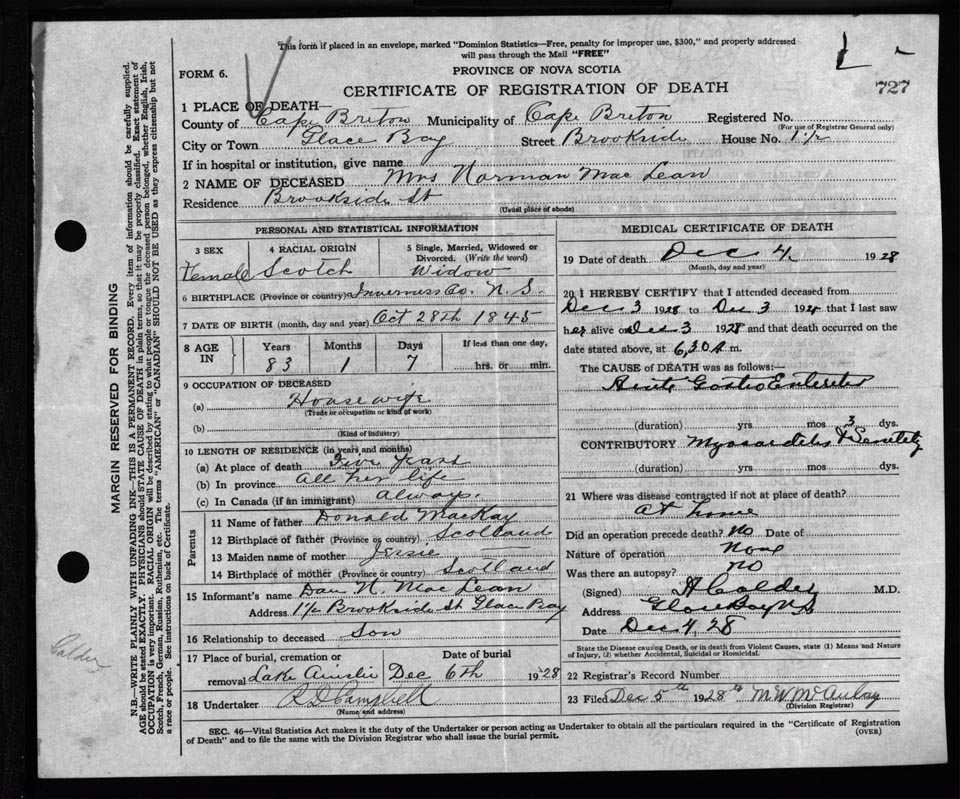 This form if placed in an envelope, marked "Dominion Statistics—Free, penalty for improper use, $300," and properly addressed
will pass through the Mail "FREE"
FORM 6.
PROVINCE OF NOVA SCOTIA
727
CERTIFICATE OF REGISTRATION OF DEATH
1 PLACE OF DEATH—
County of Cape Breton Municipality of Cape Breton Registered No.
(For use of Registrar General only)
City or Town Glace Bay Street Brookside House No. 1½
If in hospital or institution, give name
2 NAME OF DECEASED Mrs Norman Mac Lean
Residence Brookside St
(Usual place of abode)
PERSONAL AND STATISTICAL INFORMATION
3 SEX
Female
4 RACIAL ORIGIN
Scotch
5 Single, Married, Widowed or
Divorced. (Write the word)
Widow
6 BIRTHPLACE (Province or country) Inverness Co. N. S.
7 DATE OF BIRTH (month, day and year) Oct 28th 1845
8 AGE IN
Years Months Days If less than one day,
83 1 7 hrs. or min.
9 OCCUPATION OF DECEASED
(a) Housewife
(Trade or occupation or kind of work)
(b)
(Kind of industry)
10 LENGTH OF RESIDENCE (in years and months)
(a) At place of death Five years
(b) In province All her life
(c) In Canada (if an immigrant) always.
Parents
11 Name of father Donald MacKay
12 Birthplace of father (Province or country) Scotland
13 Maiden name of mother Jessie —
14 Birthplace of mother (Province or country) Scotland
15 Informant's name Dan N. Mac Lean
Address 1½ Brookside St Glace Bay
16 Relationship to deceased Son
17 Place of burial, cremation or Date of burial
removal Lake Ainslie Dec 6th 1928
18 Undertaker R D Campbell
(Name and address)
MEDICAL CERTIFICATE OF DEATH
19 Date of death Dec 4, 1928
(Month, day and year)
20 I HEREBY CERTIFY that I attended deceased from
Dec 3 1928 to Dec 3 1928 that I last saw
her alive on Dec 3 1928 and that death occurred on
the date stated above, at 6,30 A m.
The CAUSE of DEATH was as follows:—
Acute Gastro Enteritis
(duration) yrs mos 3 dys.
CONTRIBUTORY Myocarditis & Senility
(duration) yrs mos dys.
21 Where was disease contracted if not at place of death?
At home
Did an operation precede death? No Date of
Nature of operation None
Was there an autopsy? No
(Signed) A Calder M.D.
Address Glace Bay N S
Date Dec 4, 28
State the Disease causing Death, or in death from Violent Causes, state (1) Means and Nature
of Injury, (2) whether Accidental, Suicidal or Homicidal.
22 Registrar's Record Number
23 Filed Dec 5th 1928 M W McAulay
(Division Registrar)
SEC. 46—Vital Statistics Act makes it the duty of the Undertaker or person acting as Undertaker to obtain all the particulars required in the "Certificate of Registration
of Death" and to file the same with the Division Registrar who shall issue the burial permit.
(OVER)
MARGIN RESERVED FOR BINDING
N.B.—WRITE PLAINLY WITH UNFADING INK—THIS IS A PERMANENT RECORD. Every item of information should be carefully supplied.
AGE should be stated EXACTLY. PHYSICIANS should STATE CAUSE OF DEATH in plain terms, so that it may be properly classified. Exact statement of
OCCUPATION is very important. RACIAL ORIGIN will be described by stating to what people or tongue the deceased person belonged, whether English, Irish,
Scotch, French, German, Russian, Ruthenian, etc. The terms "AMERICAN" or "CANADIAN" SHOULD NOT BE USED as they express citizenship but not
a race or people. See instructions on back of Certificate.
Calder